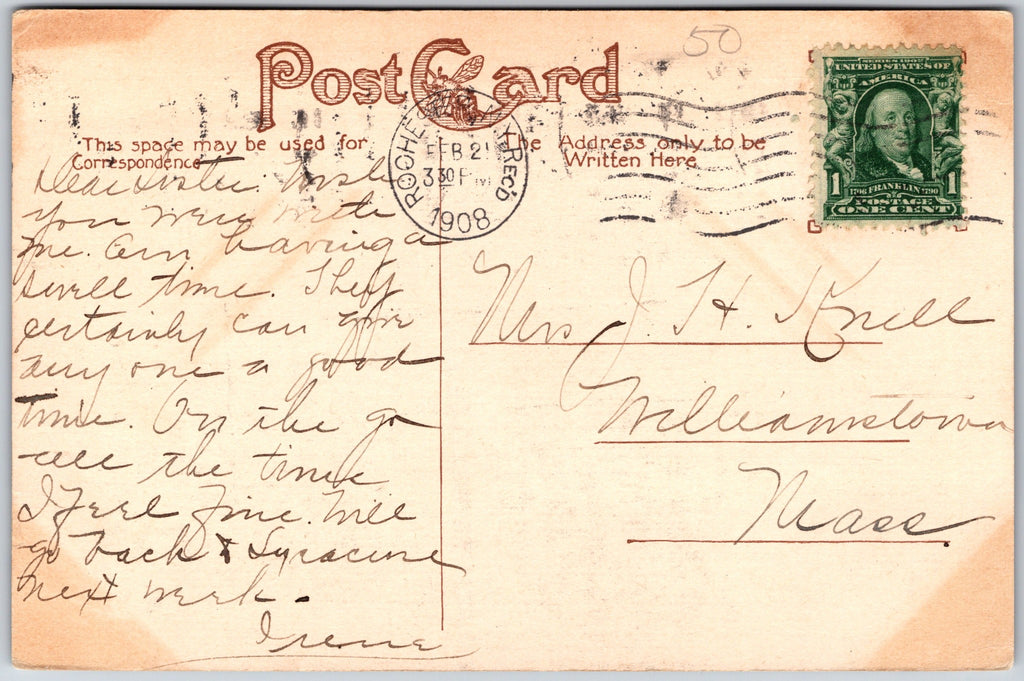 50
Post Card
This space may be used for
Correspondence
The Address only to be
Written Here
ROCHE REC'D
FEB 21
3 30 PM
1908
SERIES 1902
UNITED STATES OF
AMERICA
1 1706 FRANKLIN 1790 1
POSTAGE
ONE CENT
Dear Sister. Wish
you were with
me. Am having a
swell time. They
certainly can give
any one a good
time. On the go
all the time
I feel fine. Will
go back to Syracuse
next week.
Irene
Mrs J. H. Knell
Williamstown
Mass.